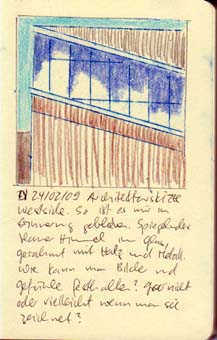 24/02/09 Architekturskizze
Westside. So ist es mir in
Erinnerung geblieben. Spiegelnder
blauer Himmel im Glas,
gerahmt mit Holz und Metall.
Wie kann man Bilder und
Gefühle festhalten? Gar nicht
oder vielleicht wenn man sie
zeichnet?